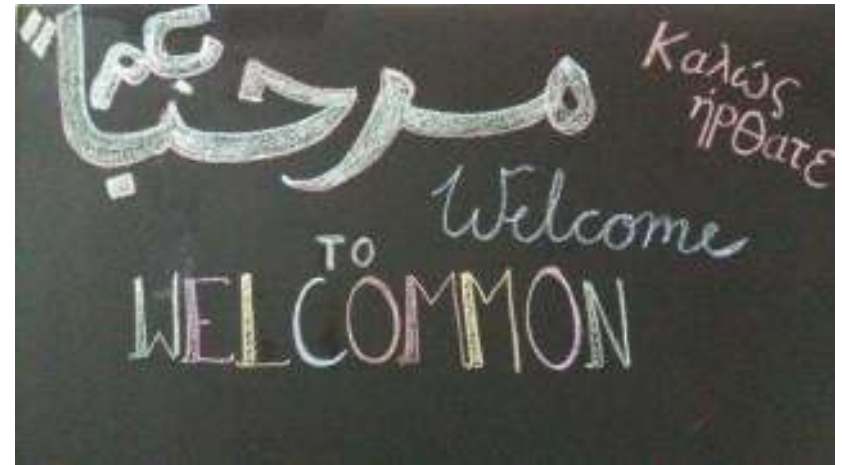 مرحباً
Καλώς
ήρθατε
Welcome
TO
WELCOMMON